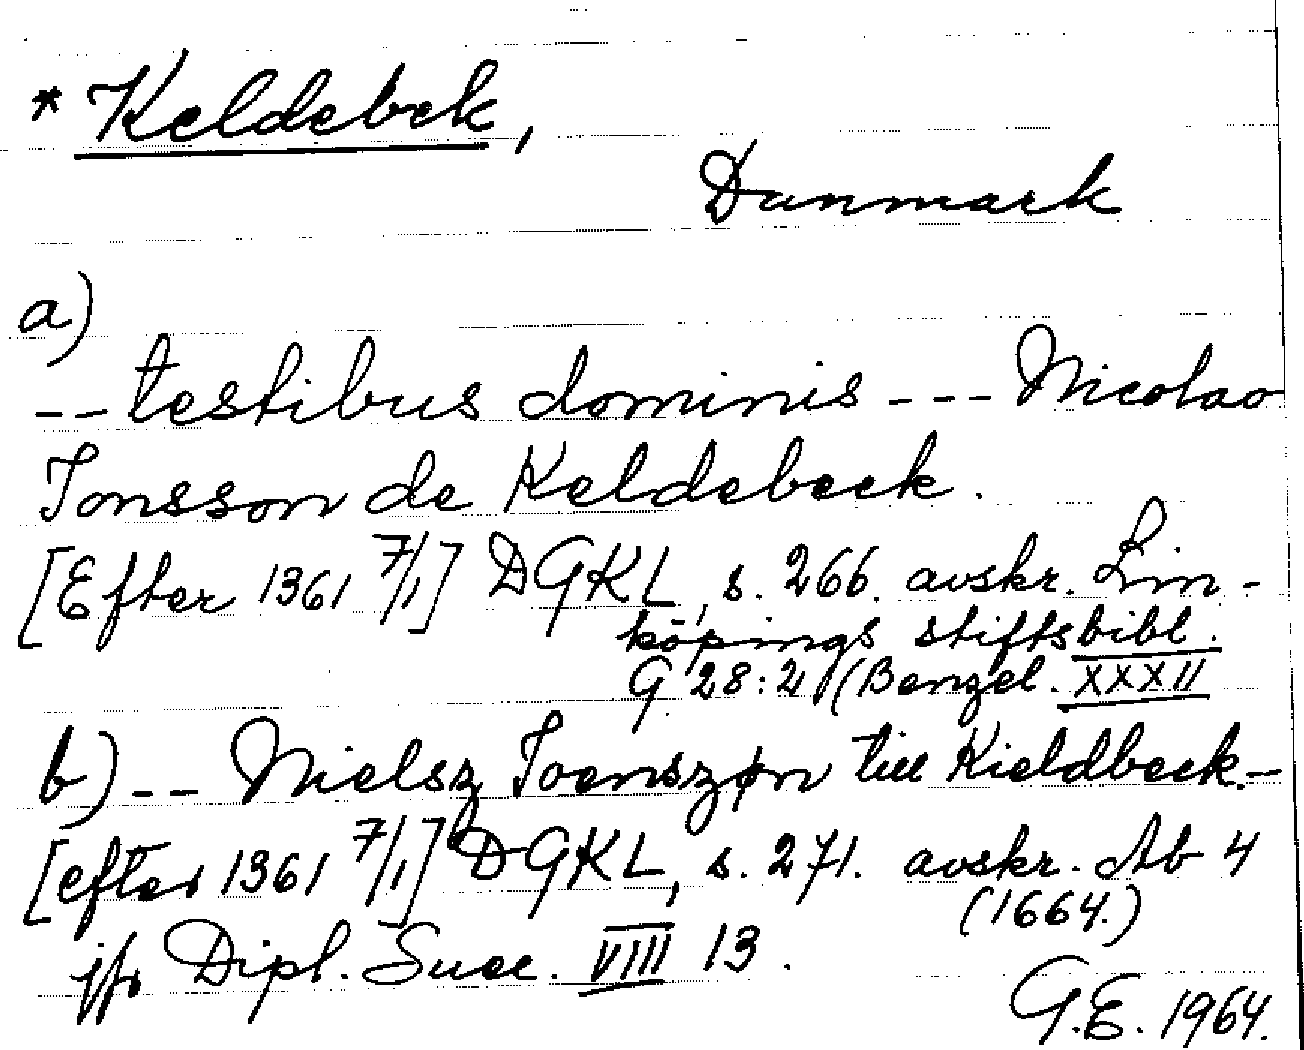 * Keldebek,
Danmark
a)
-- testibus dominis --- Nicolao
Jonsson de Keldebeck.
[Efter 1361 7/1] DGKL, s. 266. avskr. Lin-
köpings stiftsbibl.
G 28:2 (Benzel. XXXII
b) -- Nielsz Joenszøn till Kieldbeck. -
[efter 1361 7/1] DGKL, s. 271. avskr. Ab 4
(1664.)
jfr Dipl. Suec. VIII 13.
G.E. 1964.